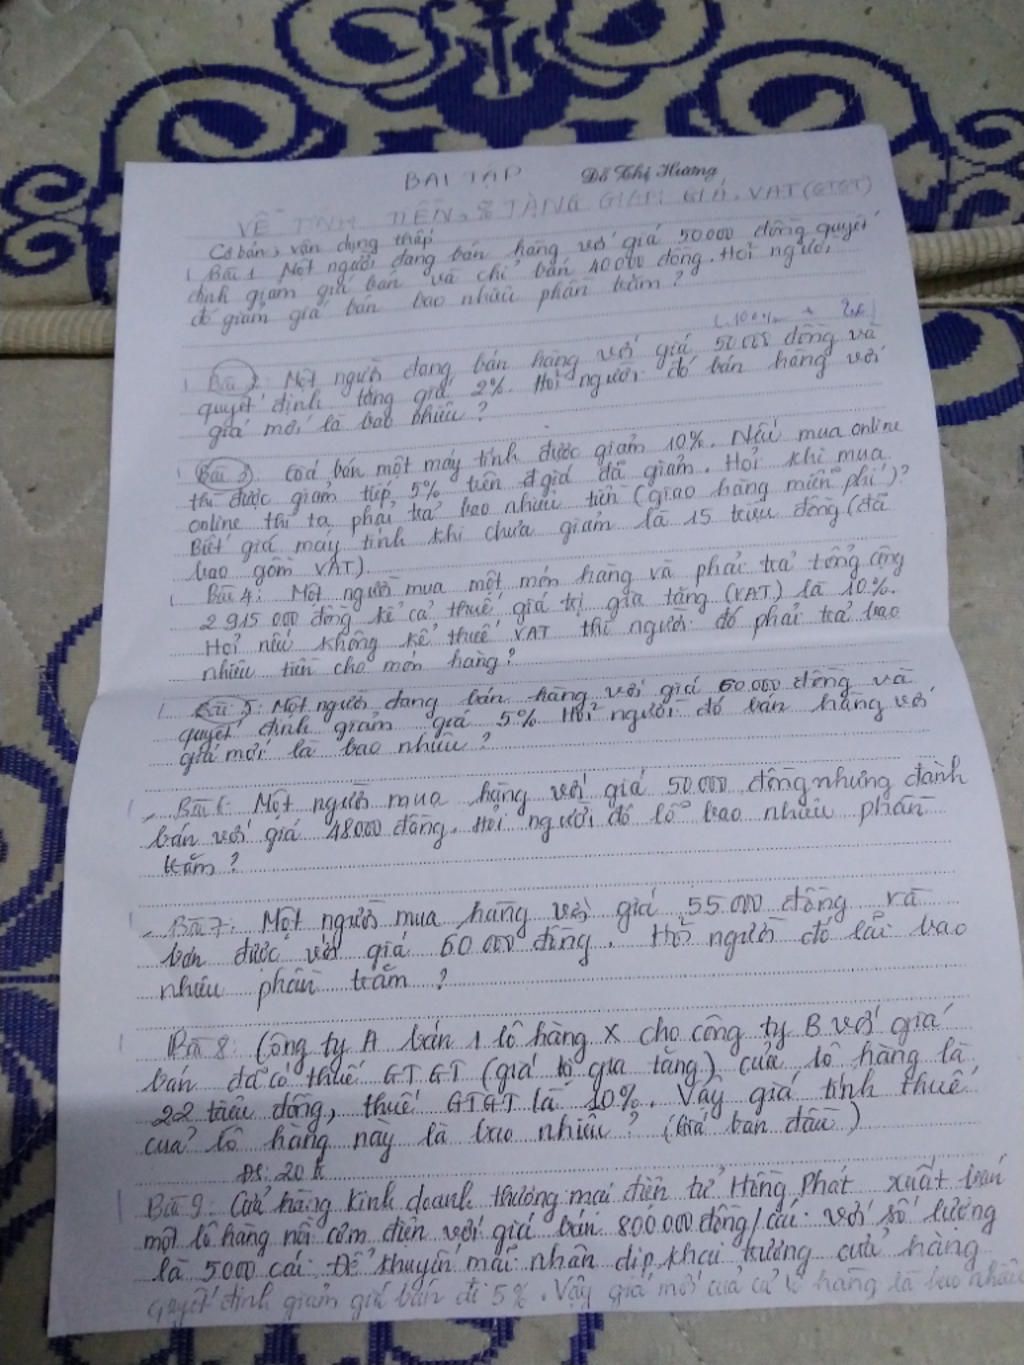 BÀI TẬP Đỗ Thị Hương
VỀ TÍNH TIỀN, % TĂNG GIẢM GIÁ, VAT (GTGT)
Cơ bản, vận dụng thấp
Bài 1. Một người đang bán hàng với giá 50.000 đồng quyết
định giảm giá bán và chỉ bán 40000 đồng. Hỏi người
đó giảm giá bán bao nhiêu phần trăm?
Bài 2: Một người đang bán hàng với giá 50.000 đồng và
quyết định tăng giá 2%. Hỏi người đó bán hàng với
giá mới là bao nhiêu?
Bài 3) Giá bán một máy tính được giảm 10%. Nếu mua online
thì được giảm tiếp 5% trên giá đã giảm. Hỏi khi mua
online thì ta phải trả bao nhiêu tiền (giao hàng miễn phí)?
Biết giá máy tính khi chưa giảm là 15 triệu đồng (đã
bao gồm VAT).
Bài 4: Một người mua một món hàng và phải trả tổng cộng
2 915 000 đồng kể cả thuế giá trị gia tăng (VAT) là 10%.
Hỏi nếu không kể thuế VAT thì người đó phải trả bao
nhiêu tiền cho món hàng?
Bài 5: Một người đang bán hàng với giá 60.000 đồng và
quyết định giảm giá 5%. Hỏi người đó bán hàng với
giá mới là bao nhiêu?
Bài 6: Một người mua hàng với giá 50.000 đồng nhưng đành
bán với giá 48000 đồng. Hỏi người đó lỗ bao nhiêu phần
trăm?
Bài 7: Một người mua hàng với giá 55000 đồng và
bán được với giá 60 000 đồng. Hỏi người đó lãi bao
nhiêu phần trăm?
Bài 8: Công ty A bán 1 lô hàng X cho công ty B với giá
bán đã có thuế GTGT (giá trị gia tăng) của lô hàng là
22 triệu đồng, thuế GTGT là 10%. Vậy giá tính thuế
của lô hàng này là bao nhiêu? (Giá ban đầu)
ĐS: 20 tr
Bài 9: Cửa hàng kinh doanh thương mại điện tử Hồng Phát xuất bán
một lô hàng nồi cơm điện với giá bán 800000 đồng/cái với số lượng
là 5000 cái. Để khuyến mãi nhân dịp khai trương cửa hàng
quyết định giảm giá bán đi 5%. Vậy giá mới của cả lô hàng là bao nhiêu